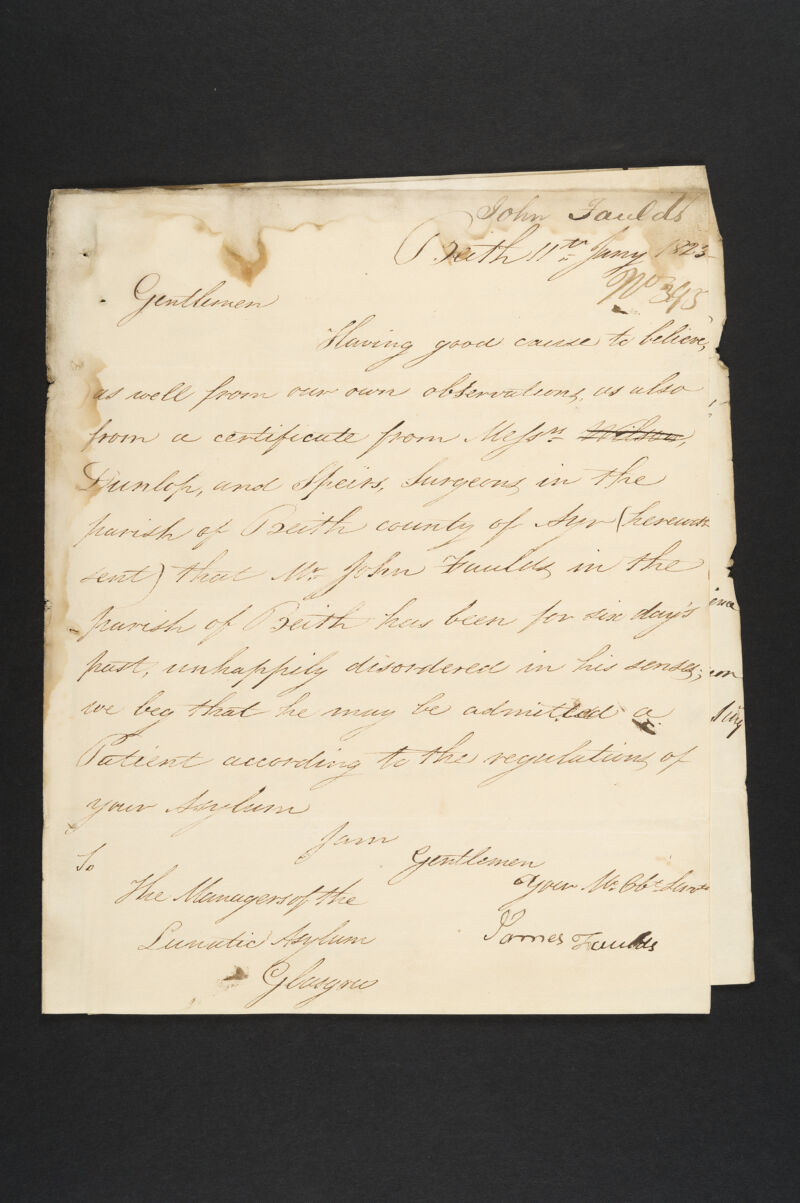 John Faulds
Beith 11th Jany 1823
No 393
Gentlemen
Having good cause to believe,
as well from our own observations, as also
from a certificate from Messrs Wilson,
Dunlop, and Speirs, Surgeons in the
parish of Beith county of Ayr (herewith
sent) that Mr John Faulds in the
parish of Beith has been for six day's
past, unhappily disordered in his senses;
we beg that he may be admitted a
Patient according to the regulations of
your Asylum
I am
Gentlemen
Your Mo. Obt. Servt
James Faulds
To
The Managers of the
Lunatic Asylum
Glasgow